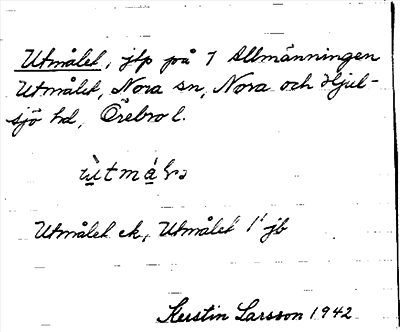 Utmålet, jtp på 7 Allmänningen
Utmålet, Nora sn, Nora och Hjul-
sjö hd, Örebro l.
Utmålet ek, Utmålet 1¹ jb
Kerstin Larsson 1942